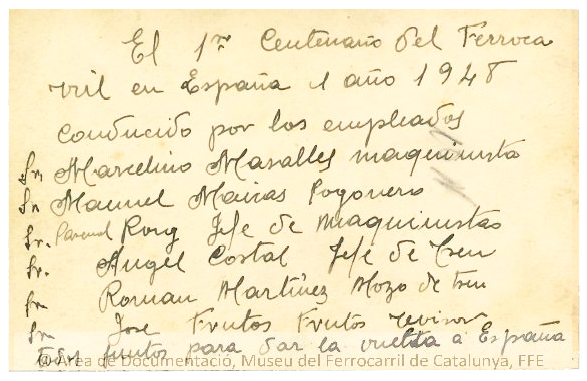 El 1er Centenario del Ferroca
rril en España 1 año 1948
conducido por los empleados
Sr. Marcelino Masalles maquinista
Sr Manuel Mairas Fogonero
Sr. Pascual Roig Jefe de maquinistas
Sr. Angel Costal Jefe de tren
Sr Roman Martinez Mozo de tren
Sr Jose Frutos Frutos revisor
todos juntos para dar la vuelta a España
© Àrea de Documentació, Museu del Ferrocarril de Catalunya, FFE